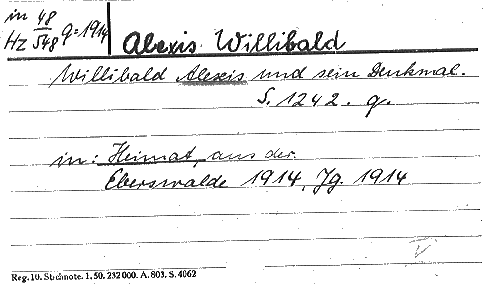 in 48
Hz 548 g=1914
Alexis Willibald
Willibald Alexis und sein Denkmal.
S. 1242. g.
in: Heimat, aus der.
Eberswalde 1914, Jg. 1914
V
Reg. 10. Stichnote. 1. 50. 232000. A. 803. S. 4062